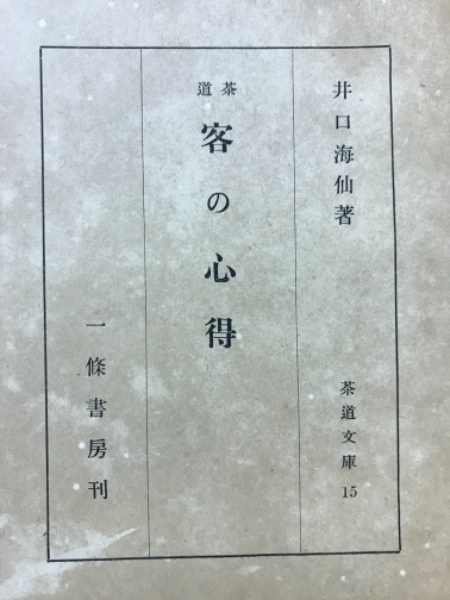 井口海仙著
茶道文庫 15
茶道
客の心得
一條書房刊